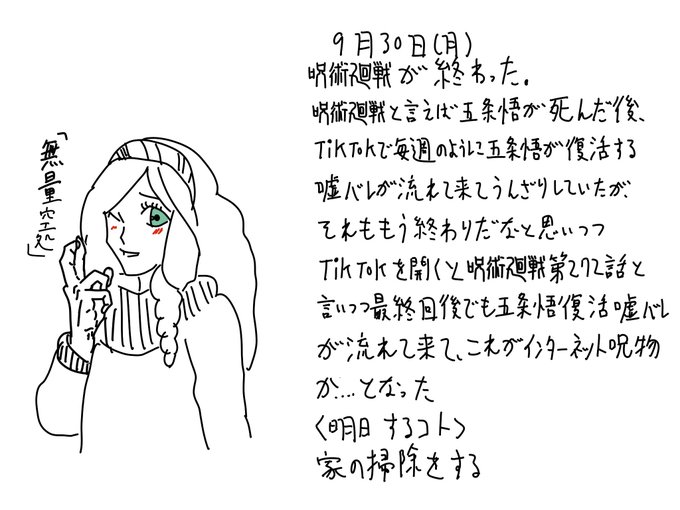 9月30日(月)
呪術廻戦が終わった。
呪術廻戦と言えば五条悟が死んだ後、
TikTokで毎週のように五条悟が復活する
嘘バレが流れて来てうんざりしていたが、
それももう終わりだなと思いつつ
TikTokを開くと、呪術廻戦第272話と
言いつつ最終回後でも五条悟復活嘘バレ
が流れて来て、これがインターネット呪物
か…となった
〈明日するコト〉
家の掃除をする
「無量空処」